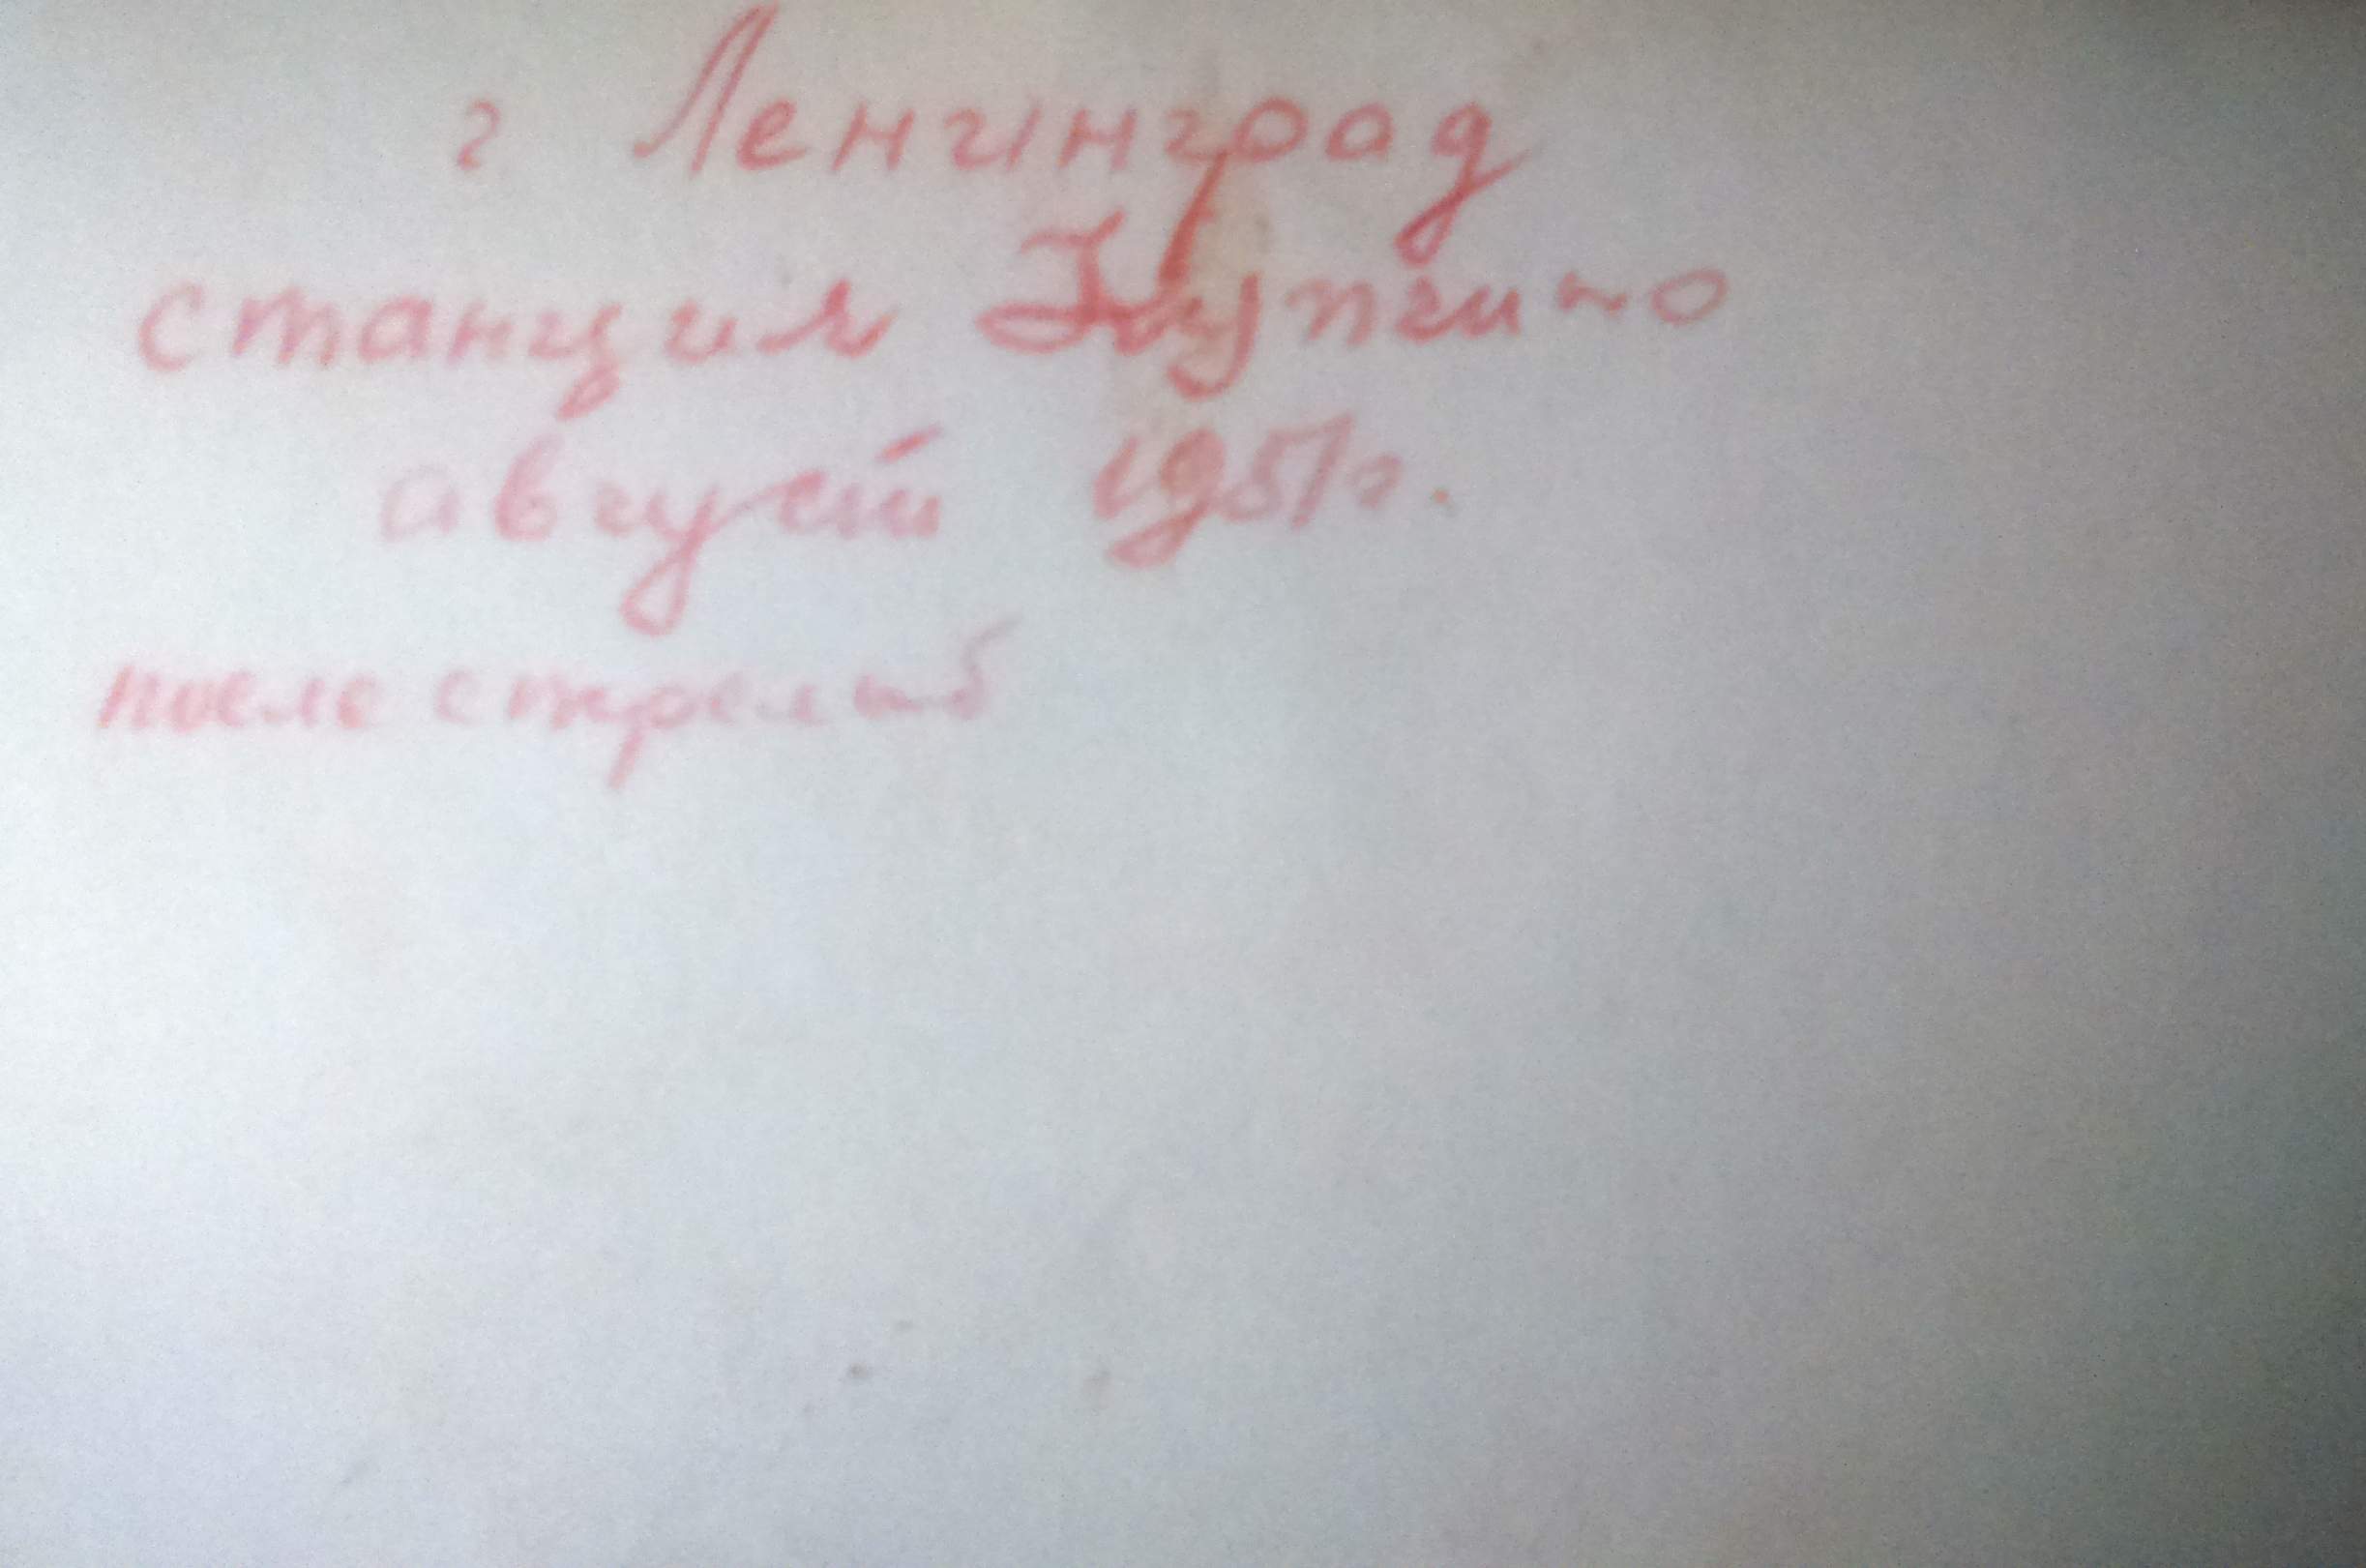 г Ленинград
станция Купчино
август 1951г.
после стрельб